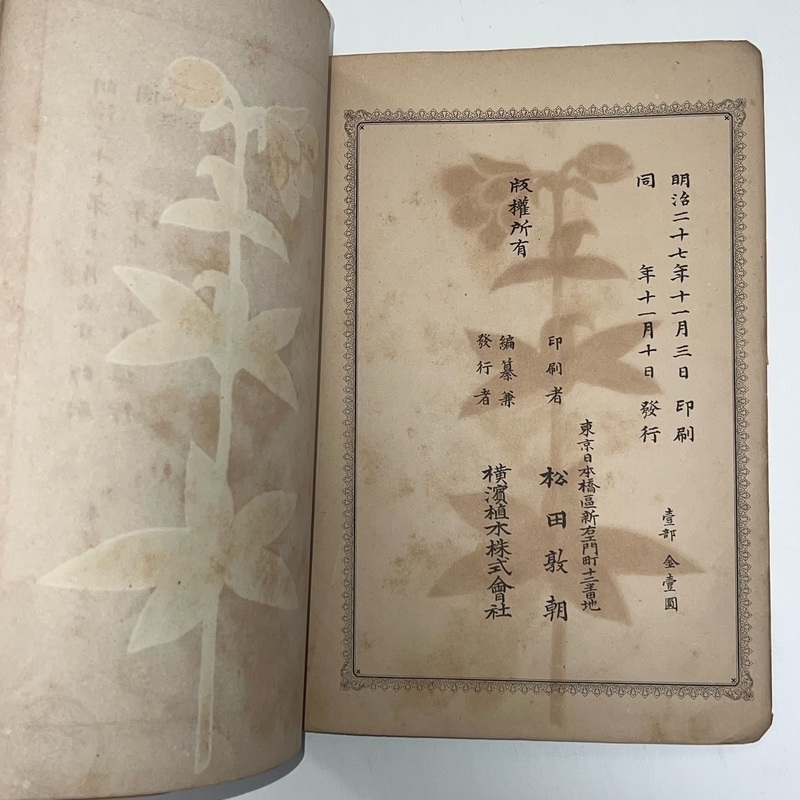 明治二十七年十一月三日 印刷
同 年十一月十日 發行
壹部 金壹圓
版權所有
東京日本橋區新右衛門町十二番地
印刷者 松田敦朝
編纂兼
發行者 橫濱植木株式會社